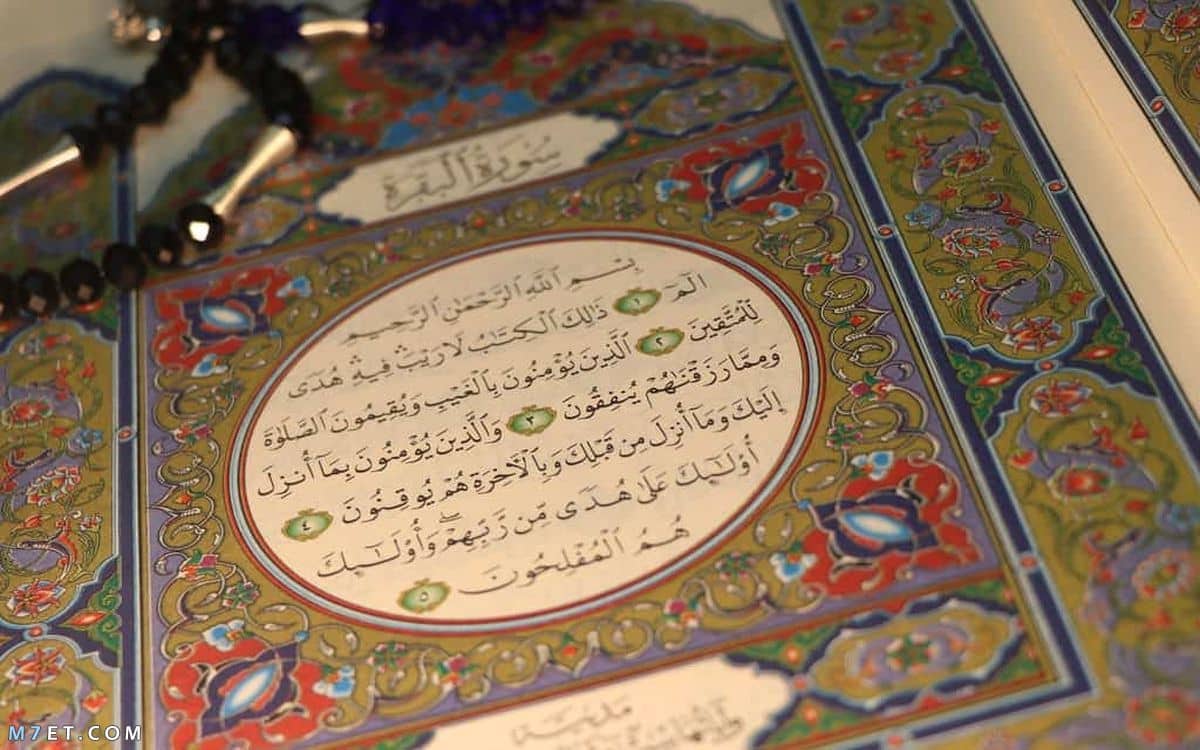 سُورَةُ ٱلْبَقَرَةِ
بِسْمِ ٱللَّهِ ٱلرَّحْمَٰنِ ٱلرَّحِيمِ
الٓمٓ ١ ذَٰلِكَ ٱلْكِتَٰبُ لَا رَيْبَ ۛ فِيهِ ۛ هُدًى
لِّلْمُتَّقِينَ ٢ ٱلَّذِينَ يُؤْمِنُونَ بِٱلْغَيْبِ وَيُقِيمُونَ ٱلصَّلَوٰةَ
وَمِمَّا رَزَقْنَٰهُمْ يُنفِقُونَ ٣ وَٱلَّذِينَ يُؤْمِنُونَ بِمَآ أُنزِلَ
إِلَيْكَ وَمَآ أُنزِلَ مِن قَبْلِكَ وَبِٱلْءَاخِرَةِ هُمْ يُوقِنُونَ ٤
أُو۟لَٰٓئِكَ عَلَىٰ هُدًى مِّن رَّبِّهِمْ ۖ وَأُو۟لَٰٓئِكَ
هُمُ ٱلْمُفْلِحُونَ ٥
مدنية
M7ET.COM